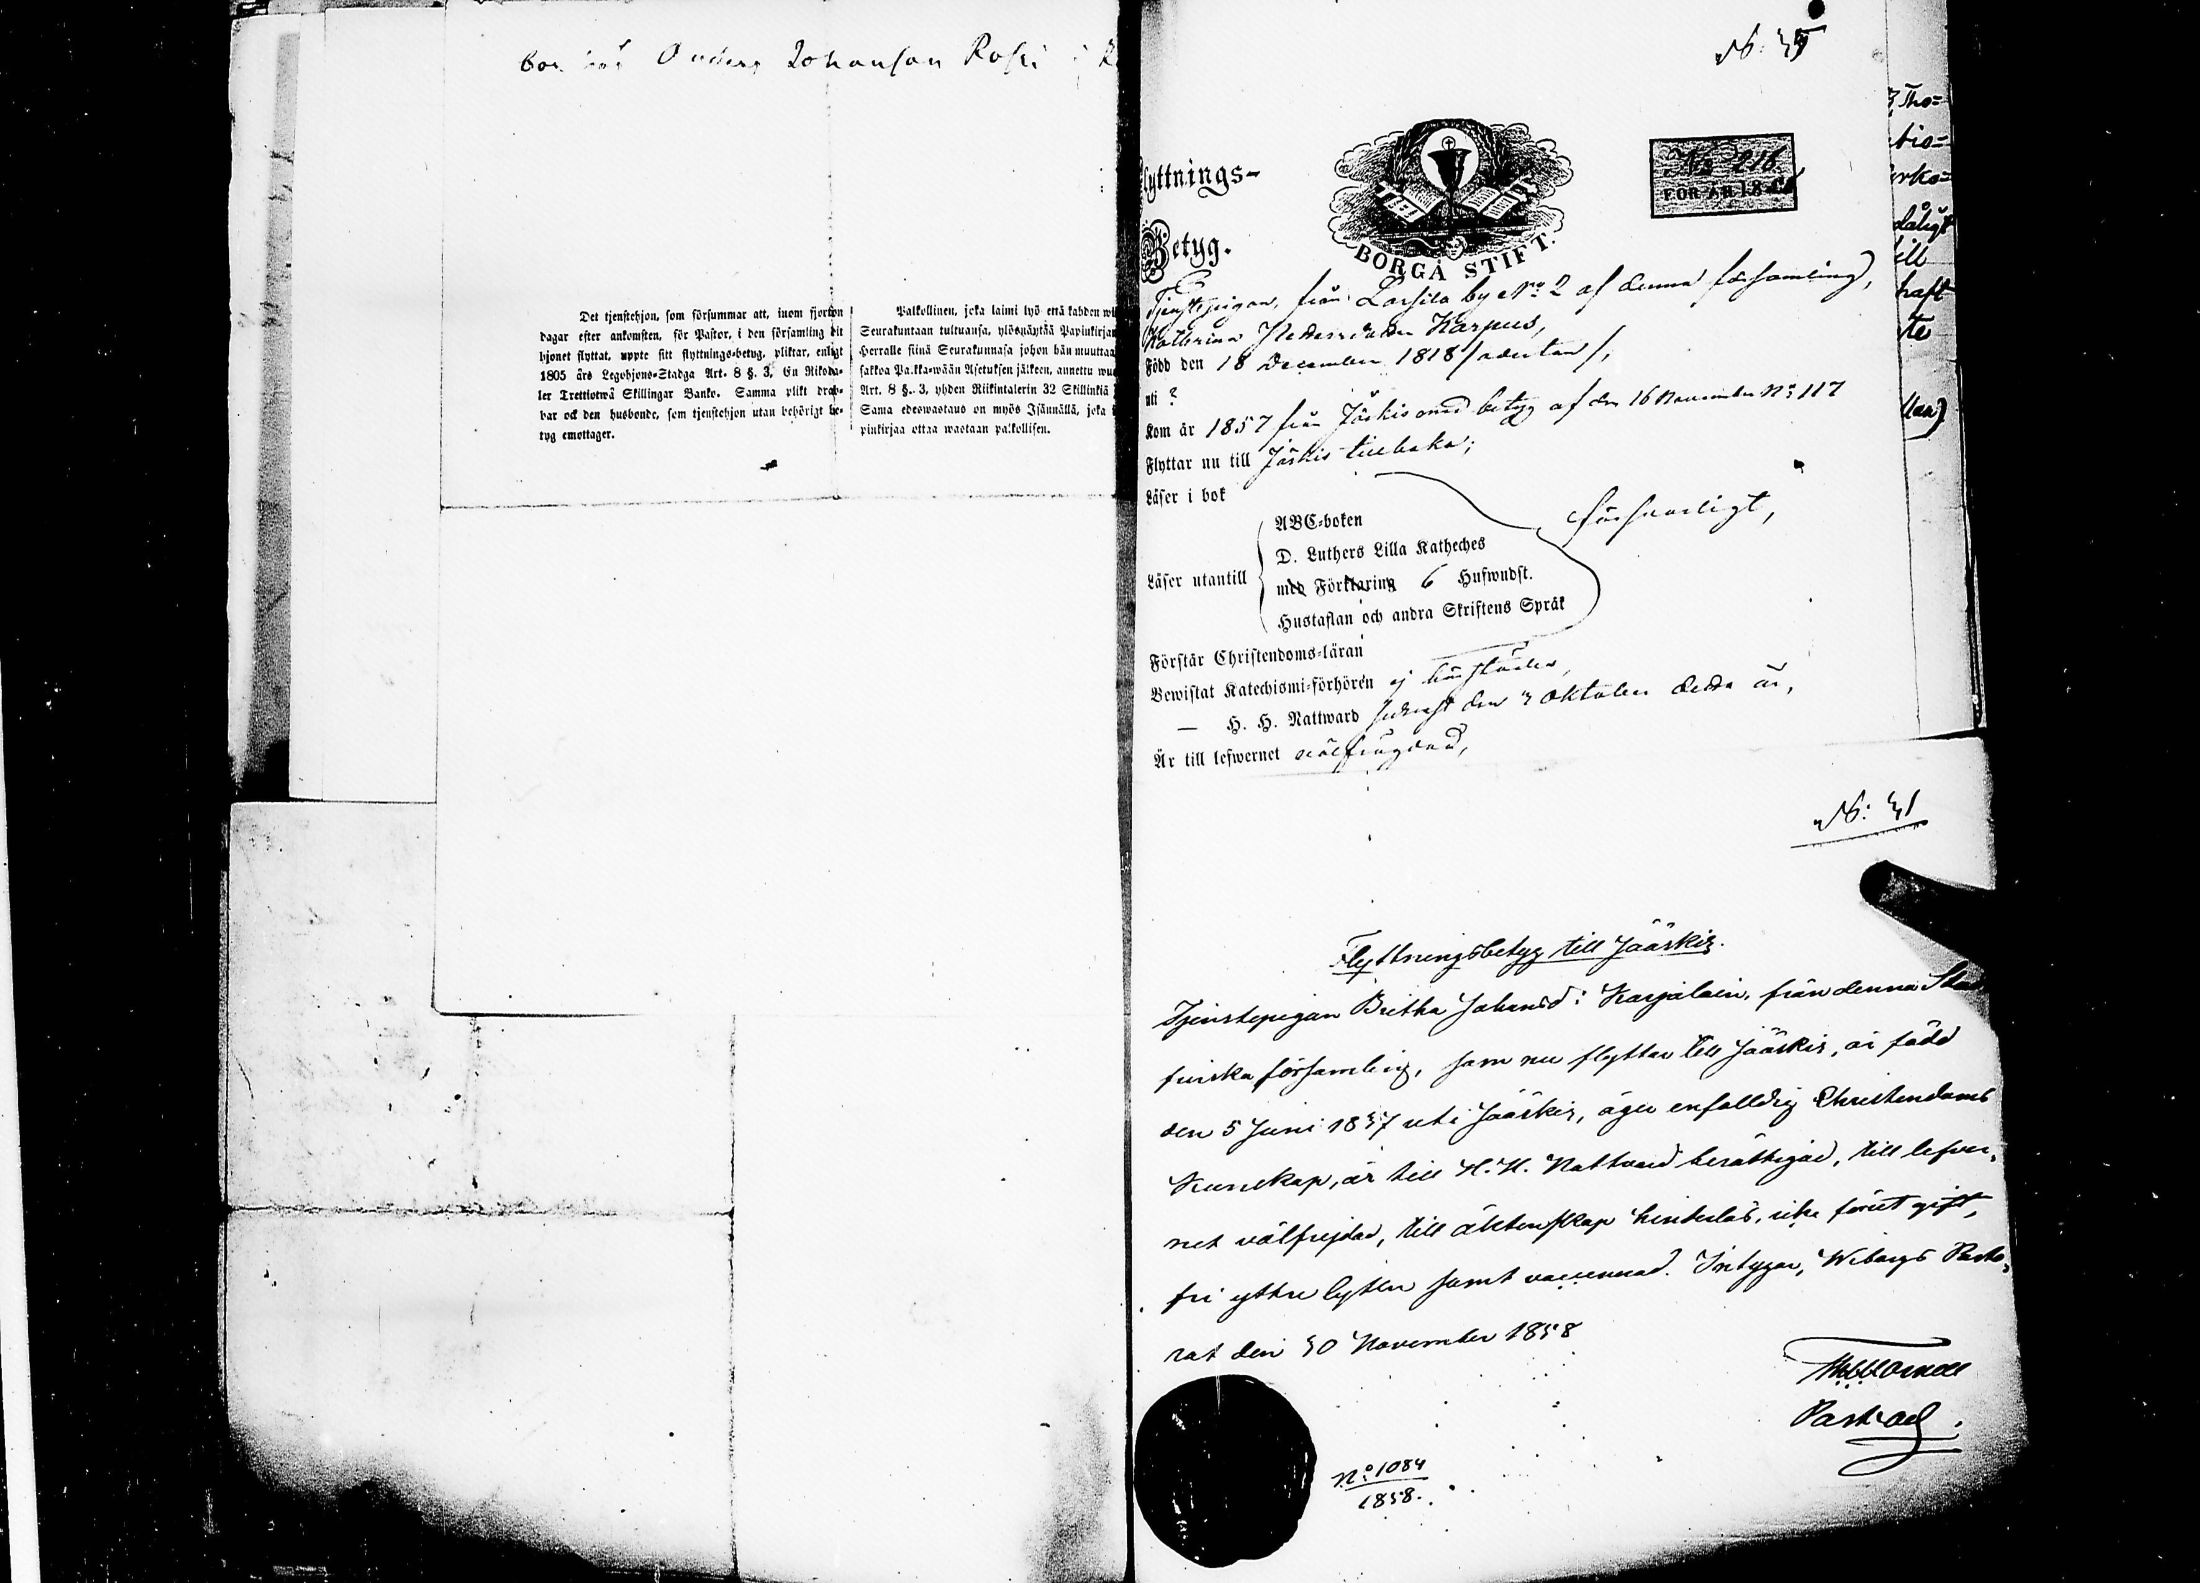 Anders Johansson Roschi i
Det tjenstehjon, som försummar att, inom fjorton
dagar efter ankomsten, för Pastor, i den församling dit
hjonet flyttat, uppte sitt flyttnings-betyg, pliktar, enligt
1805 års Legohjons-Stadga Art. 8 §. 3, En Riksda-
ler Trettiotwå Skillingar Banko. Samma plikt drab-
bar ock den husbonde, som tjenstehjon utan behörigt be-
tyg emottager.
Palkollinen, joka laimi lyö enä kahden
Seurakuntaan tultuansa, ylösnäyttää Papinkirjan
Herralle siinä Seurakunnasa johon hän muuttaa
sakkoa Palkka-wään Asetuksen jälkeen, annettu
Art. 8 §. 3, yhden Riikintalerin 32 Skillinkiä
Sama edeswastaus on myös Isännällä, joka
pinkirjaa ottaa wastaan palkollisen.
N:o
Flyttnings-
Betyg.
BORGÅ STIFT.
No 216
FÖR ÅR 18
Tjenstepigan, från Larsila by No 2 af denna församling,
Katharina Karpus,
Född den 18 December 1818 /aderton/,
uti ?
Kom år 1857 från Jäskis med betyg af den 16 November No 117
Flyttar nu till Jäskis tillbaka;
Läser i bok
Läser utantill
ABC-boken
D. Luthers Lilla Katheches
med Förklaring 6 Hufwudst.
Hustaflan och andra Skriftens Språk
försvarligt,
Förstår Christendoms-läran
Bewistat Katechismi-förhören ej härstädes,
— H. H. Nattward senast den 3 Oktober detta år,
Är till lefwernet välfrägdad,
N:o 31
Flyttningsbetyg till Jääskis.
Tjenstepigan Britha Johansd: Karjalain, från denna Stads
finska församling, som nu flyttar till Jääskis, är född
den 5 Juni 1837 uti Jääskis, äger enfalldig Christendoms
Kunskap, är till H. H. Nattvard berättigad, till lefver-
net välfrejdad, till äktenskap hinderlös, icke förut gift,
fri yttre lyten samt vaccinerad. Intygar, Wiborgs Pasto-
rat den 30 November 1858
Past: adj.
No 1084
1858.